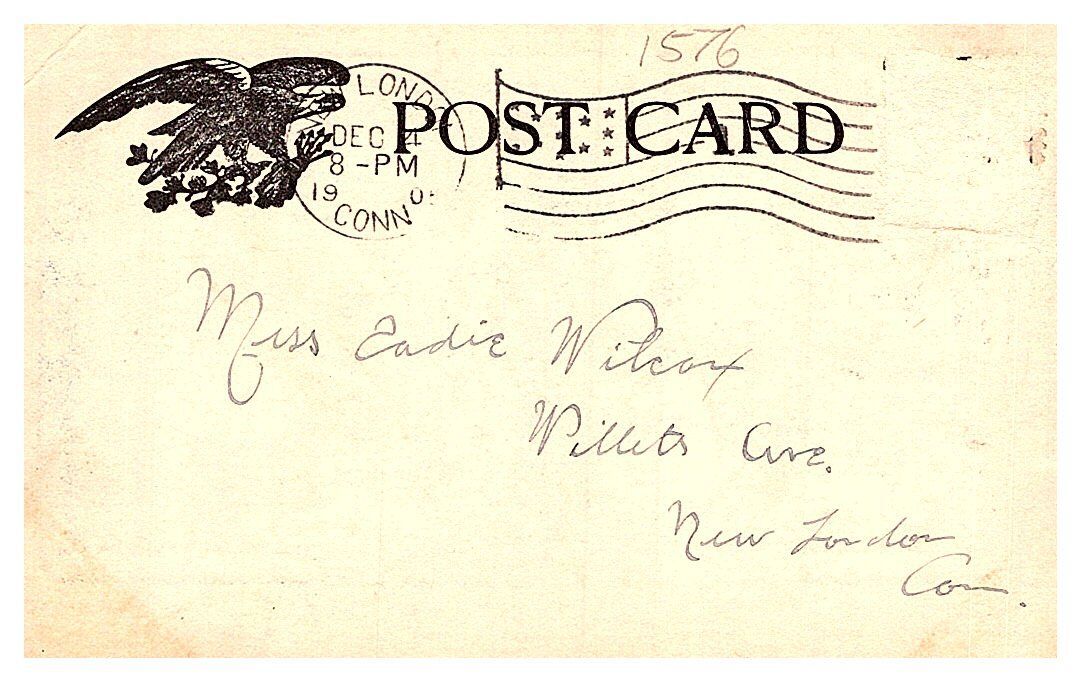 1576
POST CARD
LONDON
DEC 4
8-PM
19
CONN
Miss Eadie Wilcox
Willets Ave.
New London
Con.